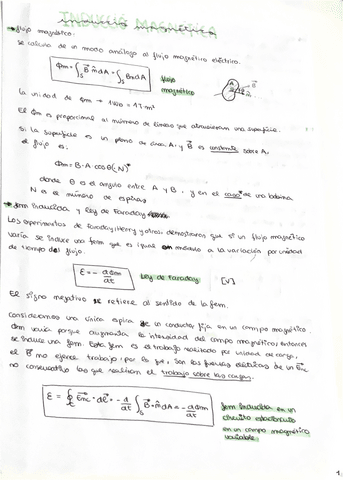 INDUCCIÓ MAGNÈTICA
flujo magnético:
se calcula de un modo análogo al flujo magnético eléctrico.
Φm = ∫s B⃗ n̂ dA = ∫s Bn dA
flujo
magnético
La unidad de Φm → 1Wb = 1T·m²
El Φm es proporcional al número de líneas que atraviesan una superficie.
Si la superficie es un plano de área A, y B⃗ es constante sobre A,
el flujo es:
Φm = B·A·cosθ(·N)*
donde θ es el ángulo entre A y B, y en el caso* de una bobina
N es el número de espiras
fem Inducida y Ley de Faraday
Los experimentos de Faraday, Henry y otros, demostraron que si un flujo magnético
varía se induce una fem que es igual en módulo a la variación por unidad
de tiempo del flujo.
Ɛ = - dΦm/dt
Ley de Faraday
[V]
El signo negativo se refiere al sentido de la fem.
Consideramos una única espira de un conductor fija en un campo magnético.
Φm varía porque aumenta la intensidad del campo magnético, entonces
se induce una fem. Esta fem es el trabajo realizado por unidad de carga,
el B⃗ no ejerce trabajo, por lo que, son las fuerzas eléctricas de un E⃗nc
no conservativo las que realizan el trabajo sobre las cargas.
Ɛ = ∮c E⃗nc · dl⃗ = - d/dt ∫s B⃗·n̂ dA = - dΦm/dt
fem Inducida en un
circuito estacionario
en un campo magnético
variable
1